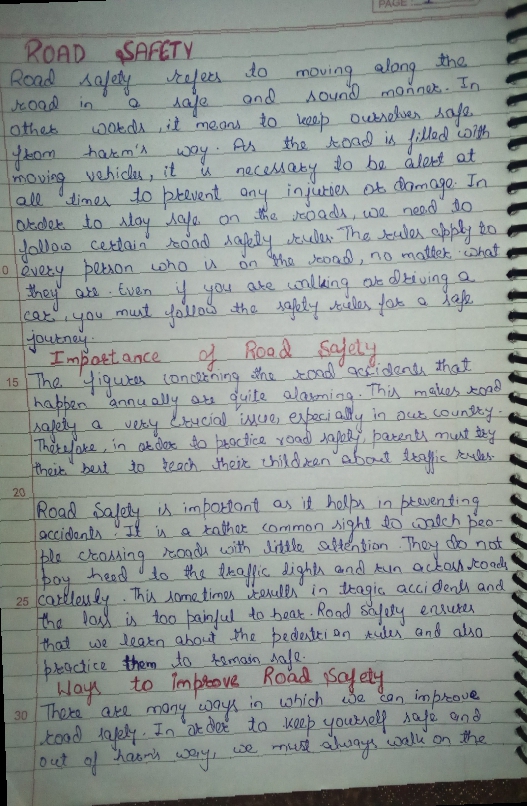 PAGE
ROAD SAFETY
Road safety refers to moving along the
road in a safe and sound manner. In
other words, it means to keep ourselves safe
from harm's way. As the road is filled with
moving vehicles, it is necessary to be alert at
all times to prevent any injuries or damage. In
order to stay safe on the roads, we need to
follow certain road safety rules. The rules apply to
0 every person who is on the road, no matter what
they are. Even if you are walking or driving a
car, you must follow the safety rules for a safe
journey.
Importance of Road Safety
15 The figures concerning the road accidents that
happen annually are quite alarming. This makes road
safety a very crucial issue, especially in our country.
Therefore, in order to practice road safety, parents must try
their best to teach their children about traffic rules.
20
Road Safety is important as it helps in preventing
accidents. It is a rather common sight to watch peo-
ple crossing roads with little attention. They do not
pay heed to the traffic lights and run across roads
25 carelessly. This sometimes results in tragic accidents and
the loss is too painful to bear. Road safety ensures
that we learn about the pedestrian rules and also
practice them to remain safe.
Ways to improve Road Safety
30 There are many ways in which we can improve
road safety. In order to keep yourself safe and
out of harm's way, we must always walk on the